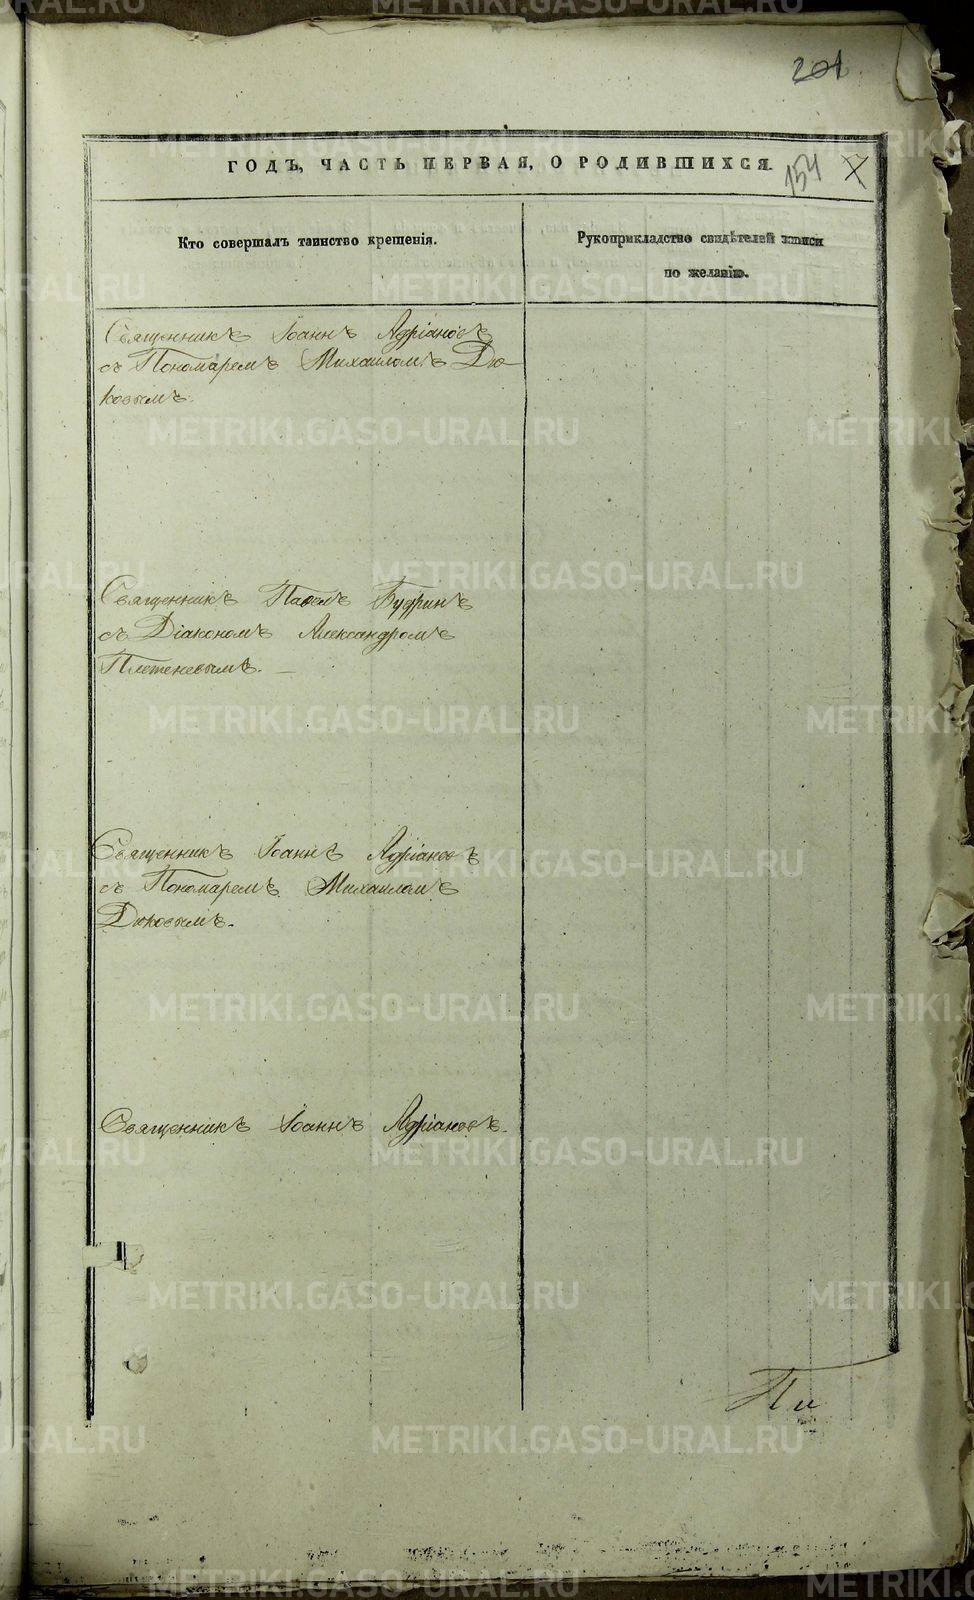 201
ГОДЪ, ЧАСТЬ ПЕРВАЯ, О РОДИВШИХСЯ.
154
Кто совершалъ таинство крещенія.
Рукоприкладство свидѣтелей записи
по желанію.
Священникъ Іоаннъ Адріановъ
съ Пономаремъ Михаиломъ Дю-
ковымъ.
Священникъ Павелъ Будринъ
съ Діакономъ Александромъ
Плетеневымъ. —
Священникъ Іоаннъ Адріановъ
съ Пономаремъ Михаиломъ
Дюковымъ.
Священникъ Іоаннъ Адріановъ.
METRIKI.GASO-URAL.RU